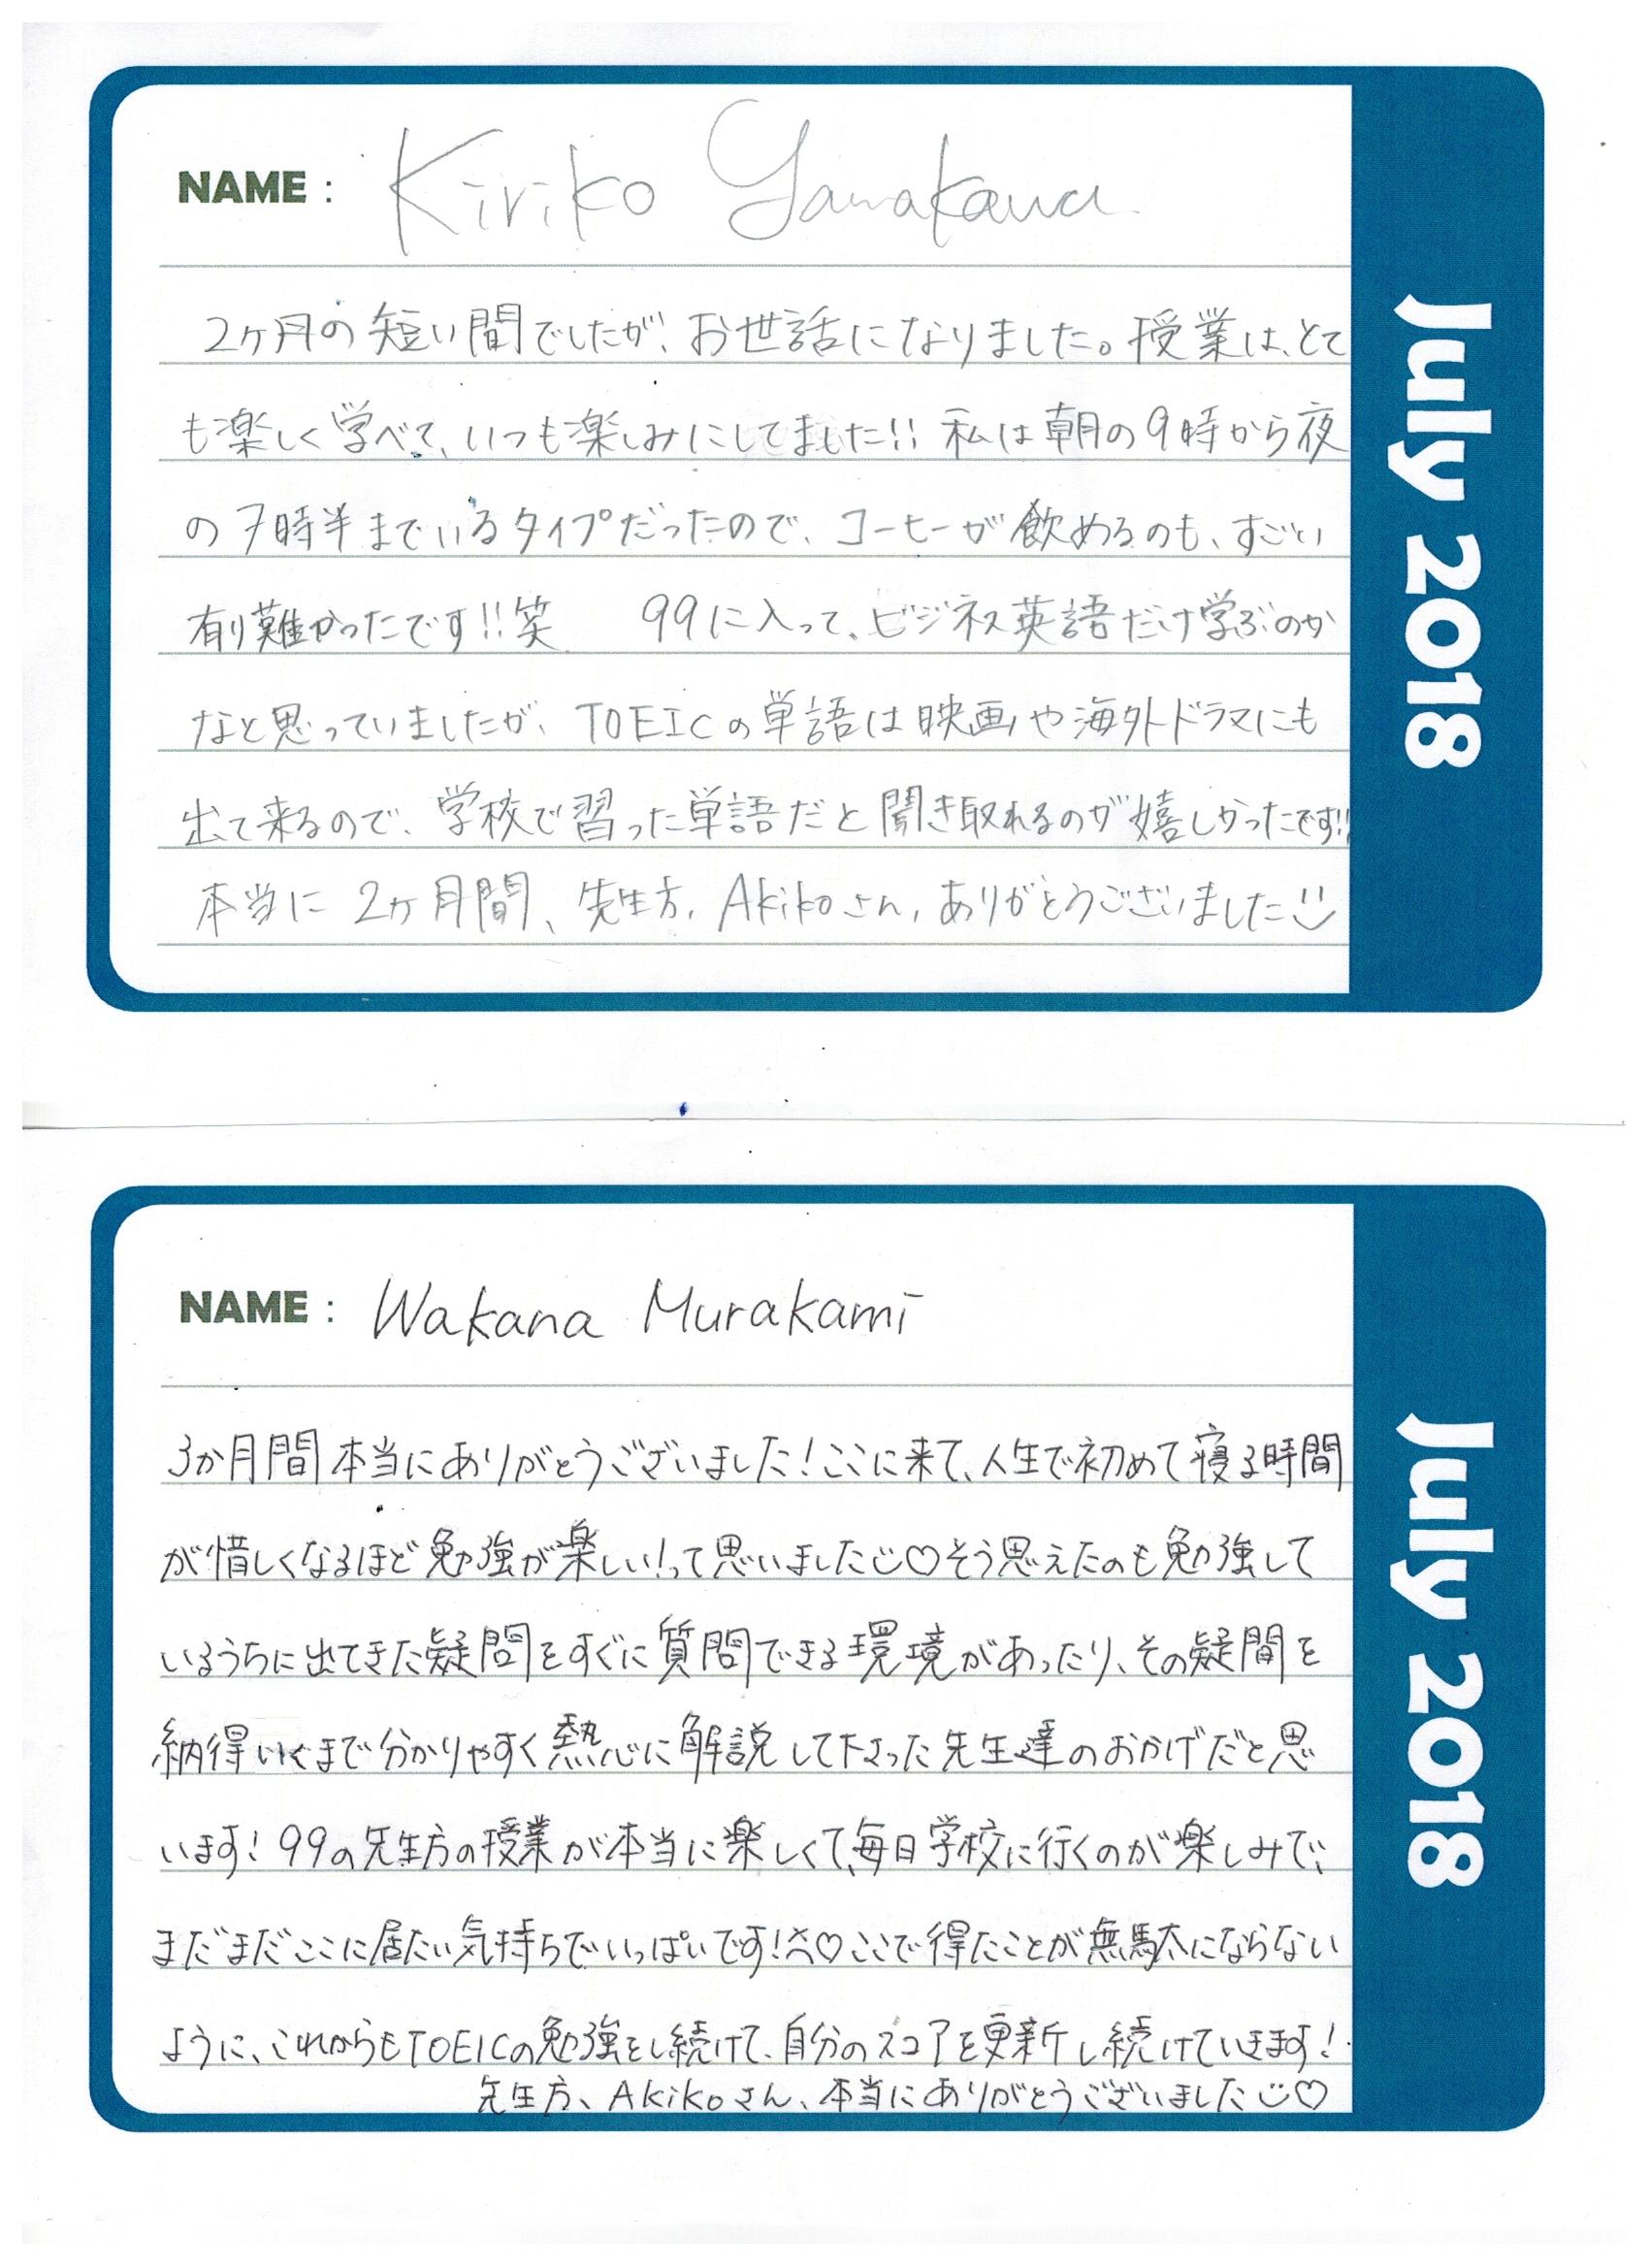 NAME : Kiriko Yamakawa
2ヶ月の短い間でしたが、お世話になりました。授業は、とて
も楽しく学べて、いつも楽しみにしてました!! 私は朝の9時から夜
の7時半までいるタイプだったので、コーヒーが飲めるのも、すごい
有り難かったです!!笑 99に入って、ビジネス英語だけ学ぶのか
なと思っていましたが、TOEICの単語は映画や海外ドラマにも
出て来るので、学校で習った単語だと聞き取れるのが嬉しかったです!!
本当に2ヶ月間、先生方、Akikoさん、ありがとうございました
July 2018
NAME : Wakana Murakami
3か月間本当にありがとうございました!ここに来て、人生で初めて寝る時間
が惜しくなるほど勉強が楽しい!って思いました♡そう思えたのも勉強して
いるうちに出てきた疑問をすぐに質問できる環境があったり、その疑問を
納得いくまで分かりやすく熱心に解説して下さった先生達のおかげだと思
います!99の先生方の授業が本当に楽しくて、毎日学校に行くのが楽しみで、
まだまだここに居たい気持ちでいっぱいです!^^♡ここで得たことが無駄にならない
ように、これからもTOEICの勉強をし続けて、自分のスコアを更新し続けていきます!
先生方、Akikoさん、本当にありがとうございました♡
July 2018